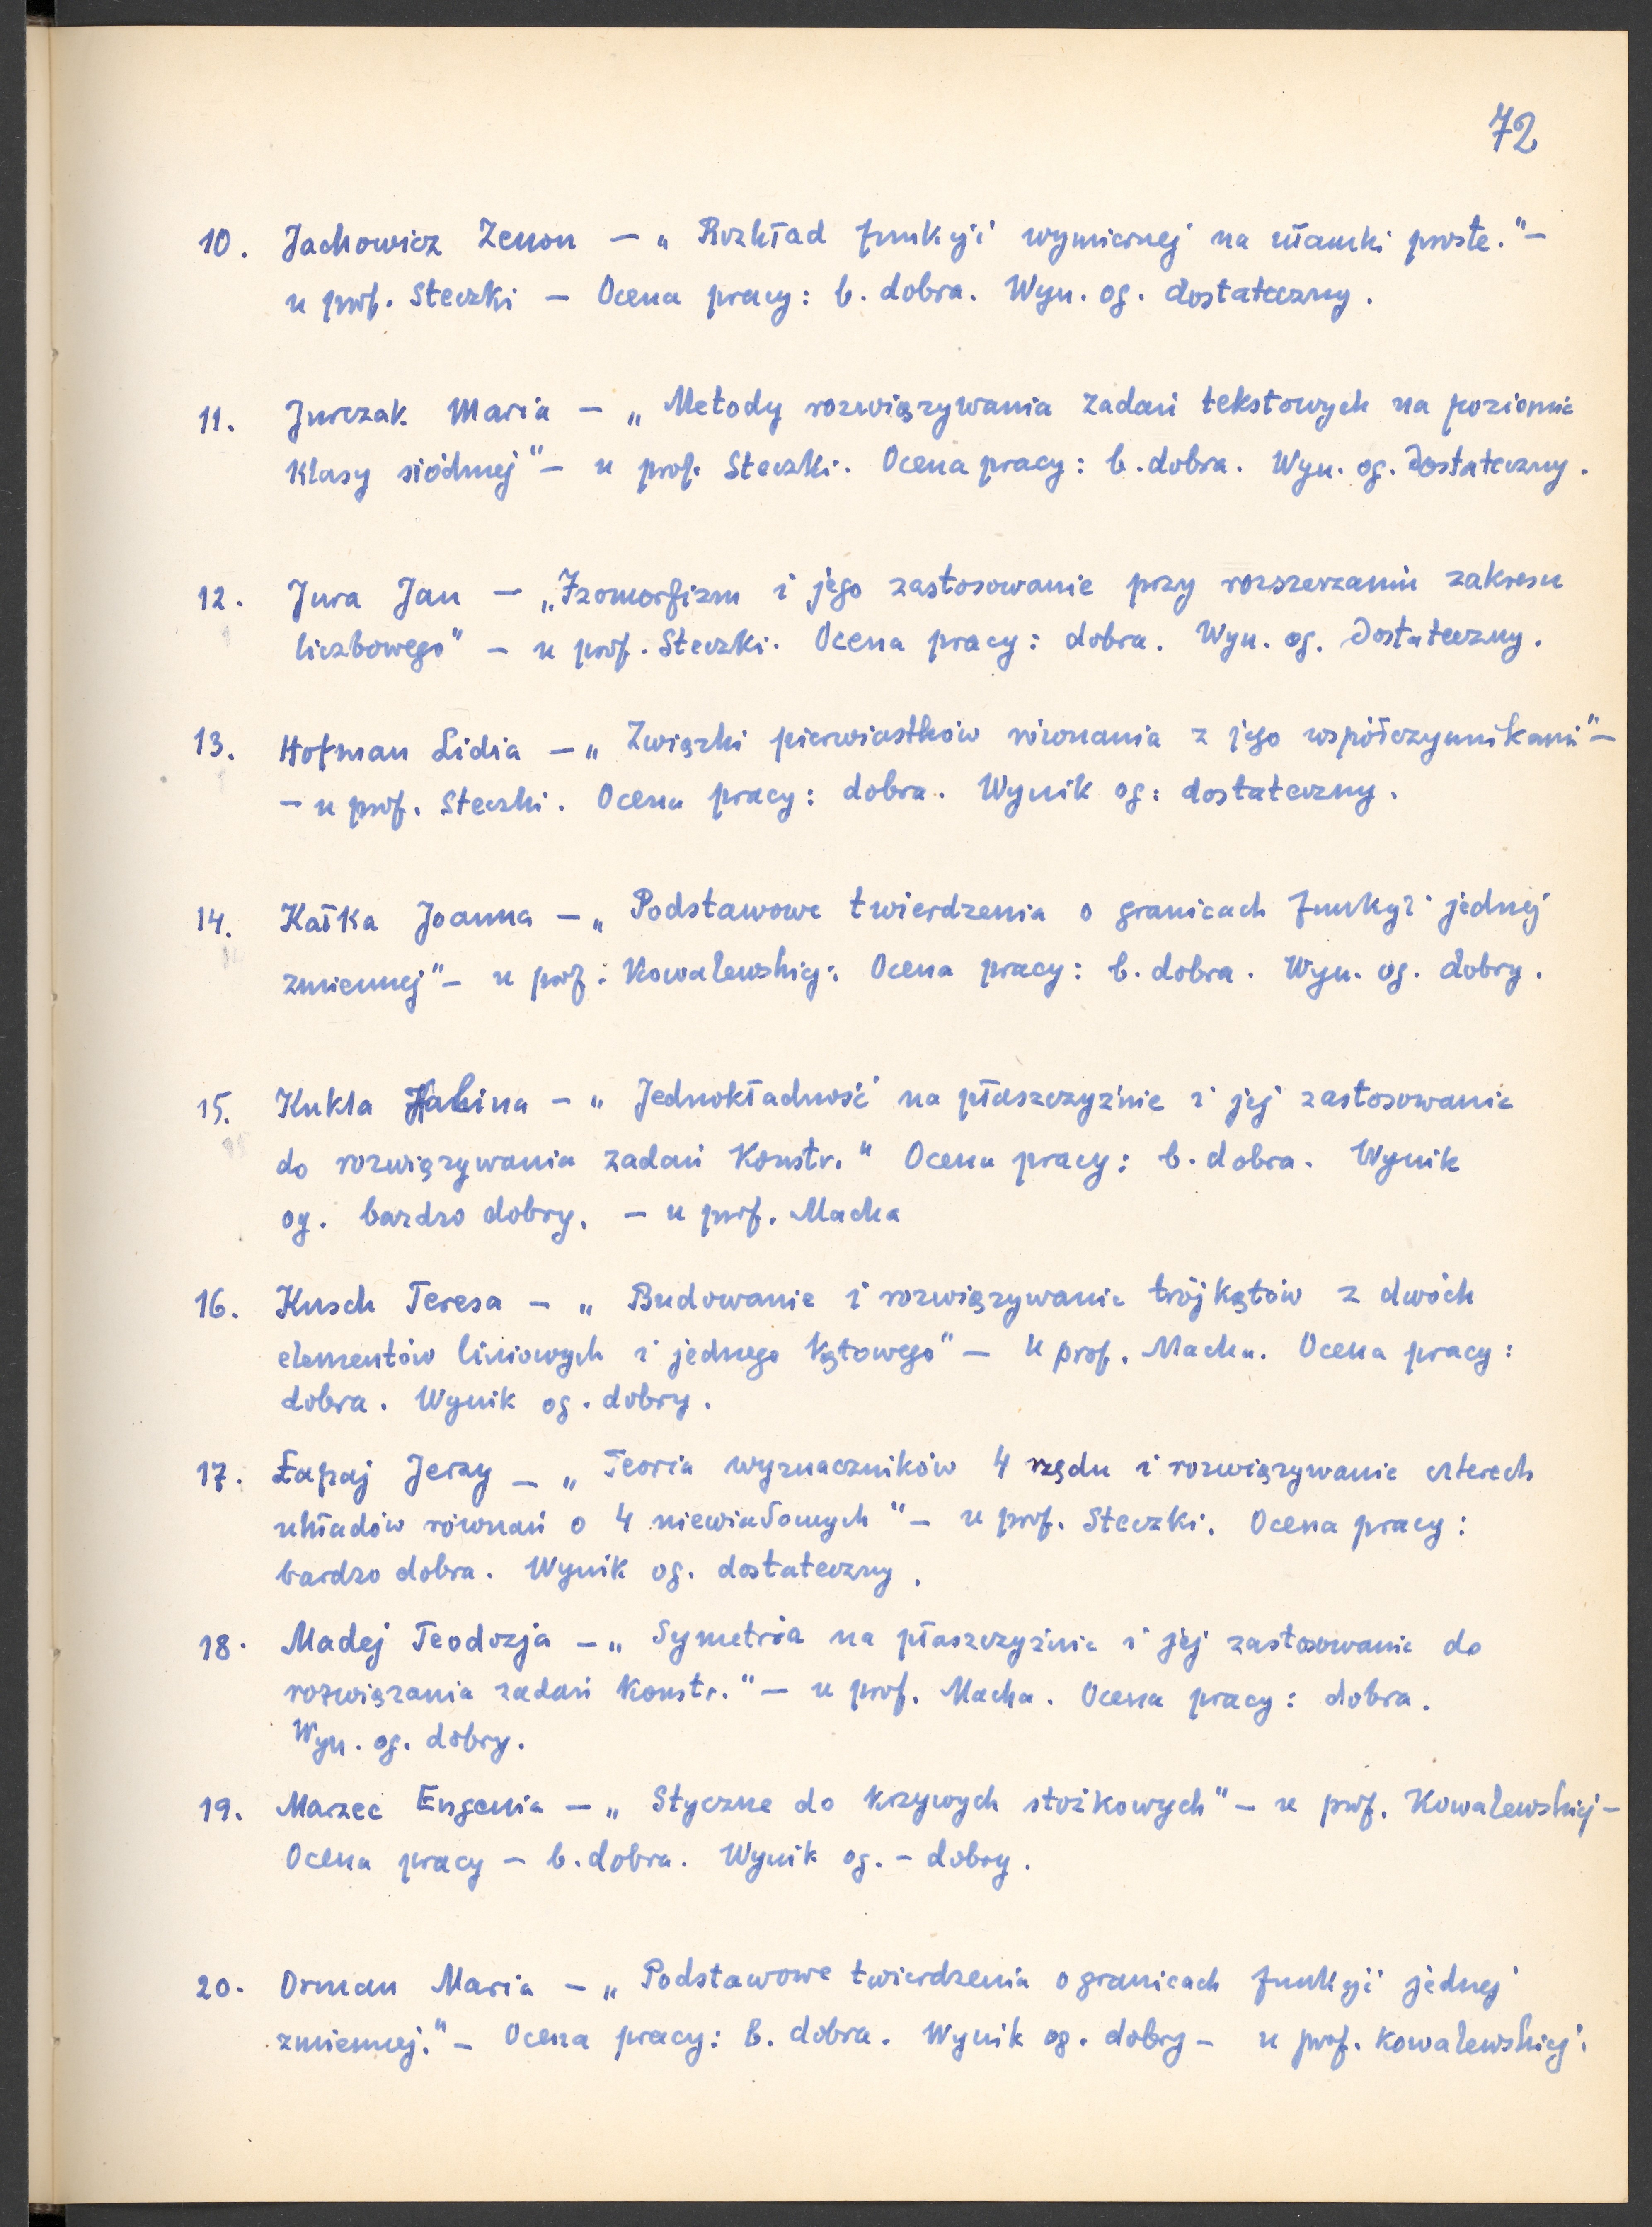 72
10. Jachowicz Zenon — „ Rozkład funkcji wymiernej na ułamki proste." —
u prof. Steczki — Ocena pracy: b. dobra. Wyn. og. dostateczny.
11. Jurczak Maria — „ Metody rozwiązywania zadań tekstowych na poziomie
klasy siódmej" — u prof. Steczki. Ocena pracy: b. dobra. Wyn. og. dostateczny.
12. Jura Jan — „Izomorfizm i jego zastosowanie przy rozszerzaniu zakresu
liczbowego" — u prof. Steczki. Ocena pracy: dobra. Wyn. og. dostateczny.
13. Hofman Lidia — „ Związki pierwiastków równania z jego współczynnikami" —
— u prof. Steczki. Ocena pracy: dobra. Wynik og: dostateczny.
14. Kałka Joanna — „ Podstawowe twierdzenia o granicach funkcji jednej
zmiennej" — u prof. Kowalewskiej. Ocena pracy: b. dobra. Wyn. og. dobry.
15. Kukla Halina — „ Jednokładność na płaszczyźnie i jej zastosowanie
do rozwiązywania zadań konstr. " Ocena pracy: b. dobra. Wynik
og. bardzo dobry. — u prof. Macha
16. Kusch Teresa — „ Budowanie i rozwiązywanie trójkątów z dwóch
elementów liniowych i jednego kątowego" — u prof. Macha. Ocena pracy:
dobra. Wynik og. dobry.
17. Łapaj Jerzy — „ Teoria wyznaczników 4 rzędu i rozwiązywanie czterech
układów równań o 4 niewiadomych " — u prof. Steczki. Ocena pracy:
bardzo dobra. Wynik og. dostateczny.
18. Madej Teodozja — „ Symetria na płaszczyźnie i jej zastosowanie do
rozwiązania zadań konstr. " — u prof. Macha. Ocena pracy: dobra.
Wyn. og. dobry.
19. Marzec Eugenia — „ Styczne do krzywych stożkowych" — u prof. Kowalewskiej —
Ocena pracy — b. dobra. Wynik og. — dobry.
20. Orman Maria — „ Podstawowe twierdzenia o granicach funkcji jednej
zmiennej." — Ocena pracy: b. dobra. Wynik og. dobry — u prof. Kowalewskiej.